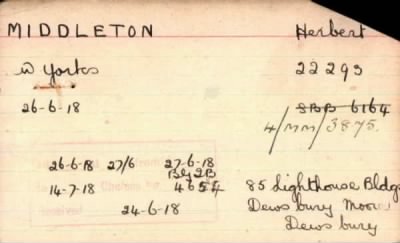 MIDDLETON Herbert
W Yorks 22293
26-6-18 SBB 6164
4/MM/3875.
26-6-18 27/6 27-6-18
Bly 2B
14-7-18 4654 85 Lighthouse Bldgs
24-6-18 Dewsbury Moor
Dewsbury